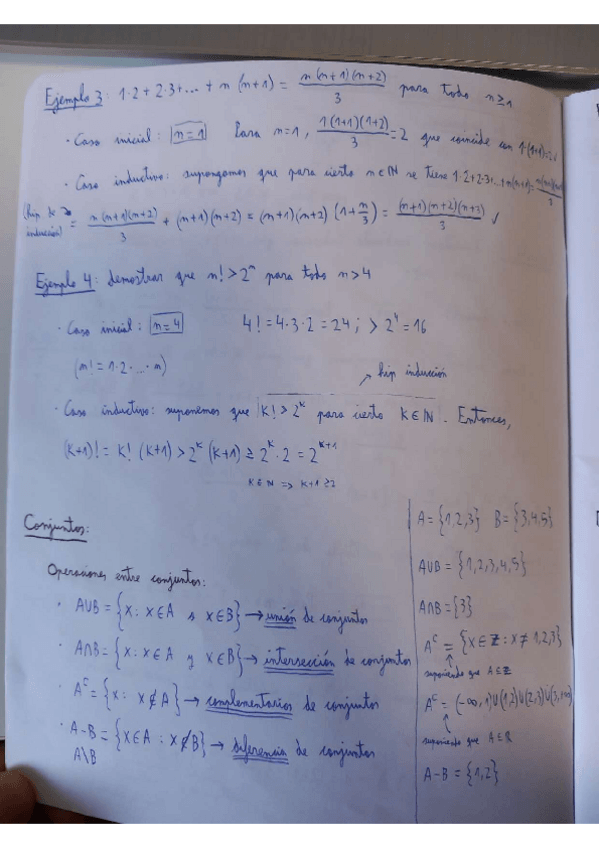 Ejemplo 3: 1·2 + 2·3 + ... + n (n+1) = n(n+1)(n+2)/3 para todo n≥1
· Caso inicial: n=1 Para n=1, 1(1+1)(1+2)/3 = 2 que coincide con 1·(1+1)=2 ✓
· Caso inductivo: supongamos que para cierto n∈ℕ se tiene 1·2+2·3+...+n(n+1)=
(hip de inducción) = n(n+1)(n+2)/3 + (n+1)(n+2) = (n+1)(n+2) (1+n/3) = (n+1)(n+2)(n+3)/3 ✓
Ejemplo 4: demostrar que n! > 2ⁿ para todo n>4
· Caso inicial: n=4 4! = 4·3·2 = 24 ; > 2⁴ = 16
(n! = 1·2·...·n)
↗ hip inducción
· Caso inductivo: suponemos que K! > 2ᴷ para cierto K∈ℕ. Entonces,
(K+1)! = K! (K+1) > 2ᴷ (K+1) ≥ 2ᴷ·2 = 2ᴷ⁺¹
K∈ℕ => K+1≥2
Conjuntos:
Operaciones entre conjuntos:
· A∪B = {x : x∈A o x∈B} → unión de conjuntos
· A∩B = {x : x∈A y x∈B} → intersección de conjuntos
· Aᶜ = {x : x∉A} → complementarios de conjuntos
· A-B = {x∈A : x∉B} → diferencia de conjuntos
A\B
A = {1,2,3} B = {3,4,5}
A∪B = {1,2,3,4,5}
A∩B = {3}
Aᶜ = {x∈ℤ : x≠1,2,3}
suponiendo que A⊆ℤ
Aᶜ = (-∞,1)∪(1,2)∪(2,3)∪(3,+∞)
suponiendo que A⊆ℝ
A-B = {1,2}